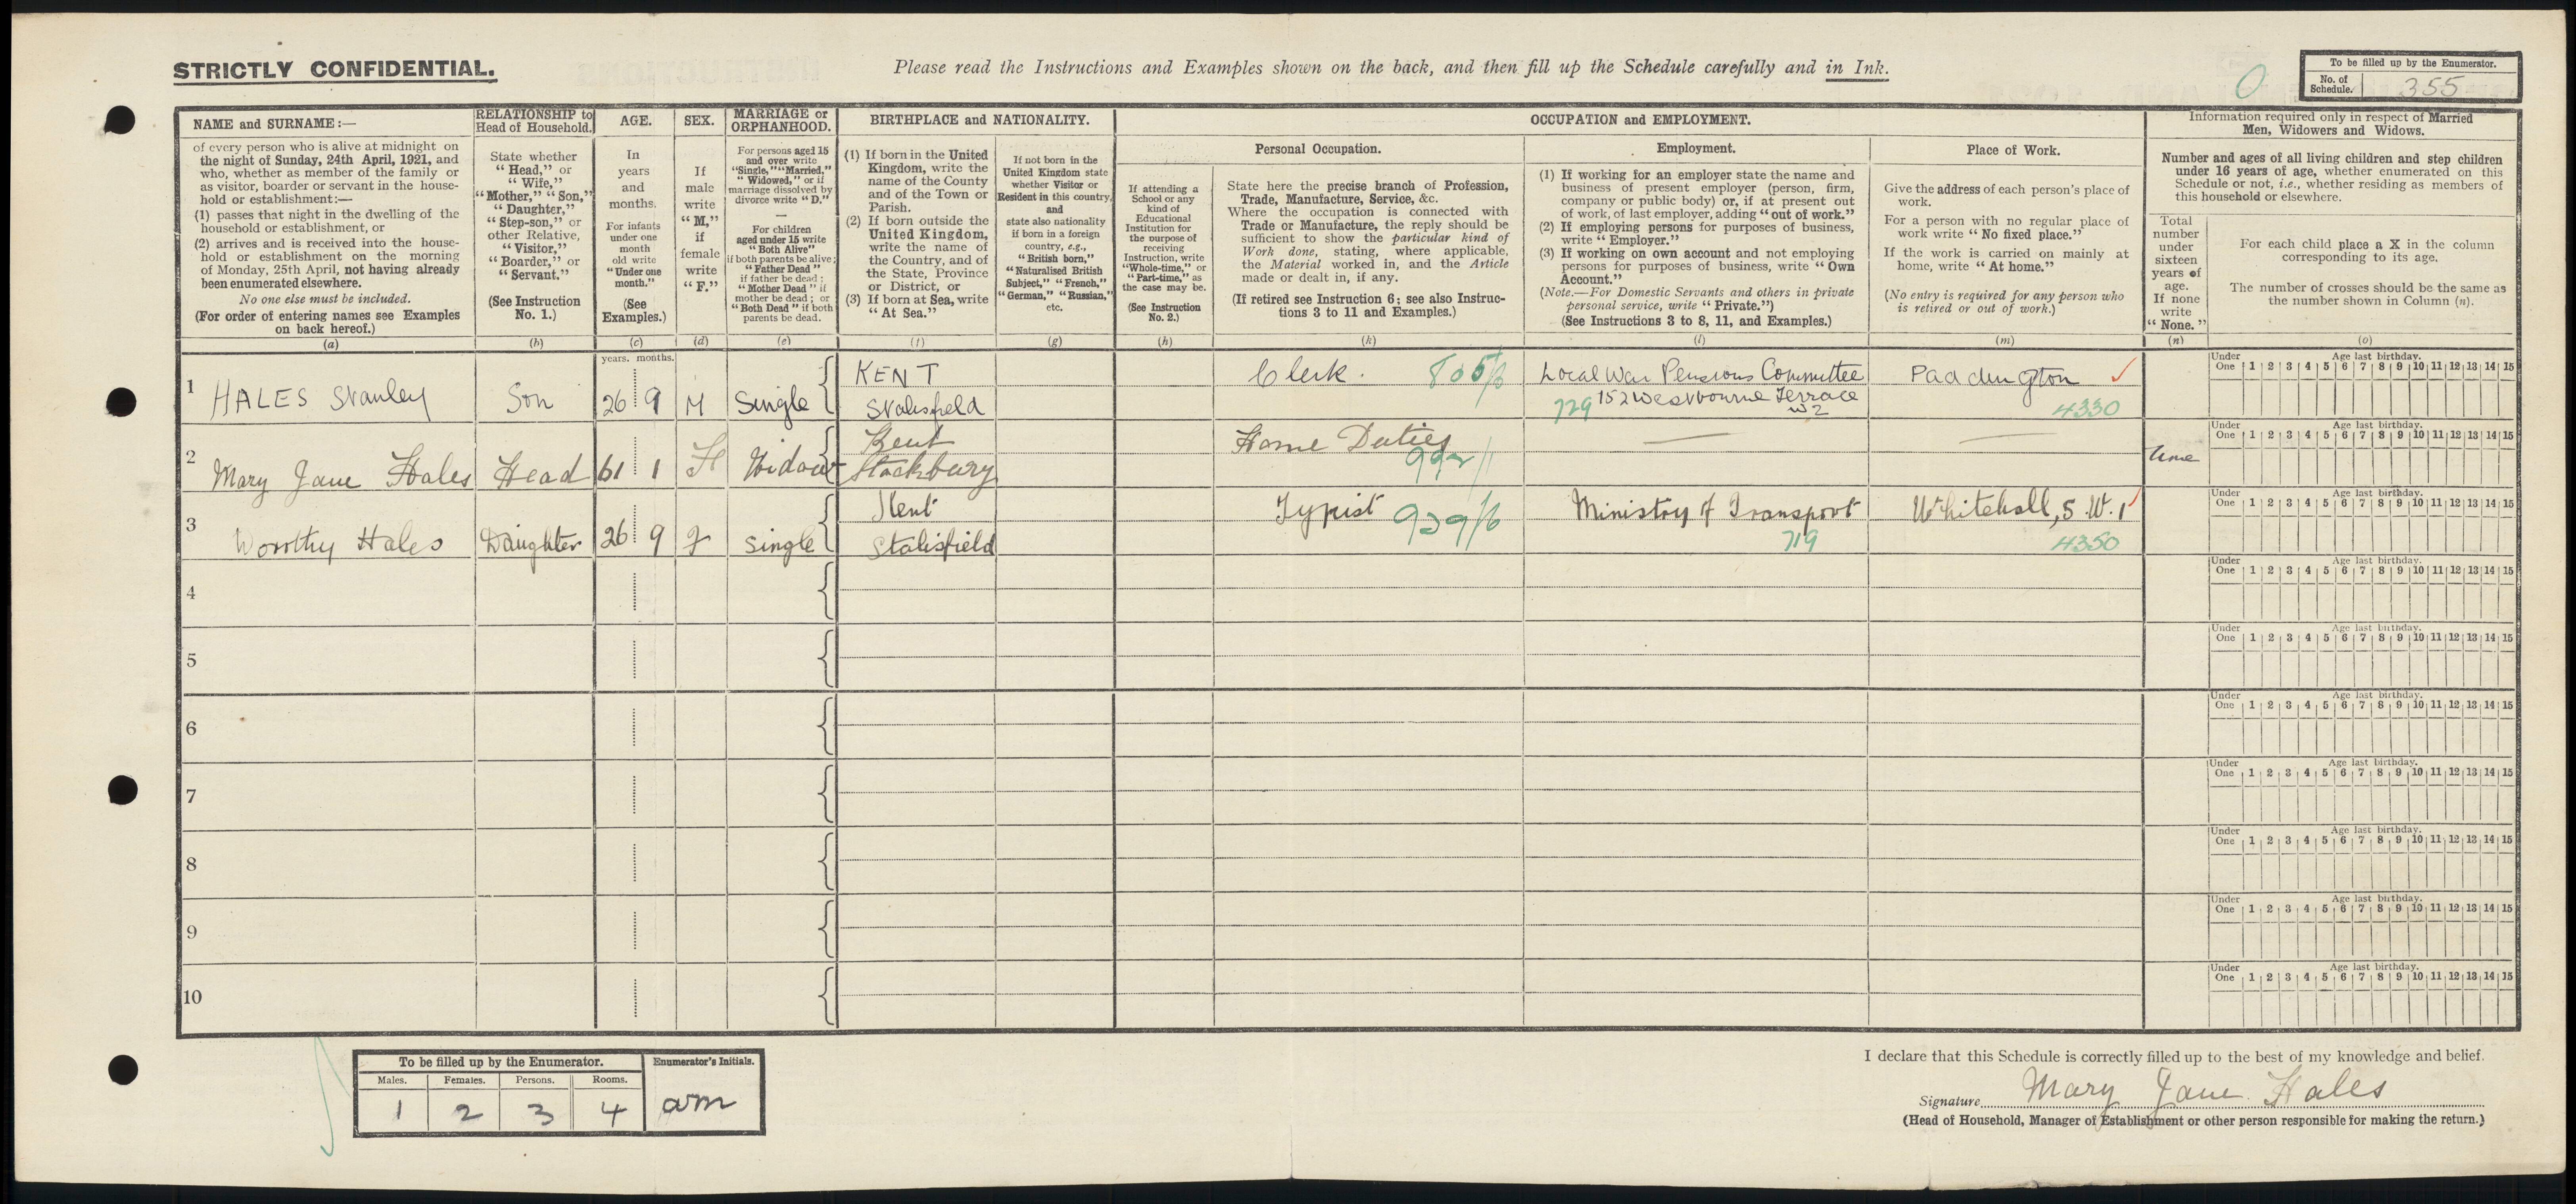 STRICTLY CONFIDENTIAL.
Please read the Instructions and Examples shown on the back, and then fill up the Schedule carefully and in Ink.
To be filled up by the Enumerator.
No. of Schedule. 355
0
NAME and SURNAME:—
of every person who is alive at midnight on
the night of Sunday, 24th April, 1921, and
who, whether as member of the family or
as visitor, boarder or servant in the house-
hold or establishment:—
(1) passes that night in the dwelling of the
household or establishment, or
(2) arrives and is received into the house-
hold or establishment on the morning
of Monday, 25th April, not having already
been enumerated elsewhere.
No one else must be included.
(For order of entering names see Examples
on back hereof.)
(a)
RELATIONSHIP to
Head of Household.
State whether
"Head," or
"Wife,"
"Mother," "Son,"
"Daughter,"
"Step-son," or
other Relative,
"Visitor,"
"Boarder," or
"Servant."
(See Instruction
No. 1.)
(b)
AGE.
In
years
and
months.
For infants
under one
month
old write
"Under one
month."
(See
Examples.)
(c)
SEX.
If
male
write
"M,"
if
female
write
"F."
(d)
MARRIAGE or
ORPHANHOOD.
For persons aged 15
and over write
"Single," "Married,"
"Widowed," or if
marriage dissolved by
divorce write "D."
—
For children
aged under 15 write
"Both Alive"
if both parents be alive;
"Father Dead"
if father be dead;
"Mother Dead" if
mother be dead; or
"Both Dead" if both
parents be dead.
(e)
BIRTHPLACE and NATIONALITY.
(1) If born in the United
Kingdom, write the
name of the County
and of the Town or
Parish.
(2) If born outside the
United Kingdom,
write the name of
the Country, and of
the State, Province
or District, or
(3) If born at Sea, write
"At Sea."
(f)
If not born in the
United Kingdom state
whether Visitor or
Resident in this country,
and
state also nationality
if born in a foreign
country, e.g.,
"British born,"
"Naturalised British
Subject," "French,"
"German," "Russian,"
etc.
(g)
OCCUPATION and EMPLOYMENT.
If attending a
School or any
kind of
Educational
Institution for
the purpose of
receiving
Instruction, write
"Whole-time," or
"Part-time," as
the case may be.
(See Instruction
No. 2.)
(h)
Personal Occupation.
State here the precise branch of Profession,
Trade, Manufacture, Service, &c.
Where the occupation is connected with
Trade or Manufacture, the reply should be
sufficient to show the particular kind of
Work done, stating, where applicable,
the Material worked in, and the Article
made or dealt in, if any.
(If retired see Instruction 6; see also Instruc-
tions 3 to 11 and Examples.)
(k)
Employment.
(1) If working for an employer state the name and
business of present employer (person, firm,
company or public body) or, if at present out
of work, of last employer, adding "out of work."
(2) If employing persons for purposes of business,
write "Employer."
(3) If working on own account and not employing
persons for purposes of business, write "Own
Account."
(Note.—For Domestic Servants and others in private
personal service, write "Private.")
(See Instructions 3 to 8, 11, and Examples.)
(l)
Place of Work.
Give the address of each person's place of
work.
For a person with no regular place of
work write "No fixed place."
If the work is carried on mainly at
home, write "At home."
(No entry is required for any person who
is retired or out of work.)
(m)
Information required only in respect of Married
Men, Widowers and Widows.
Number and ages of all living children and step children
under 16 years of age, whether enumerated on this
Schedule or not, i.e., whether residing as members of
this household or elsewhere.
Total
number
under
sixteen
years of
age.
If none
write
"None."
(n)
For each child place a X in the column
corresponding to its age.
The number of crosses should be the same as
the number shown in Column (n).
(o)
years. months.
Under One Age last birthday. 1 2 3 4 5 6 7 8 9 10 11 12 13 14 15
1 HALES Stanley Son 26 9 M Single KENT Stalisfield Clerk. 805/6 Local War Pensions Committee 729 152 Westbourne Terrace W2 Paddington 4330
Under One Age last birthday. 1 2 3 4 5 6 7 8 9 10 11 12 13 14 15
2 Mary Jane Hales Head 61 1 F Widow Kent Stockbury Home Duties — —
Under One Age last birthday. 1 2 3 4 5 6 7 8 9 10 11 12 13 14 15
3 Dorothy Hales Daughter 26 9 F single Kent Stalisfield Typist 939/6 Ministry of Transport 719 Whitehall, S.W.1 4350
Under One Age last birthday. 1 2 3 4 5 6 7 8 9 10 11 12 13 14 15
4
Under One Age last birthday. 1 2 3 4 5 6 7 8 9 10 11 12 13 14 15
5
Under One Age last birthday. 1 2 3 4 5 6 7 8 9 10 11 12 13 14 15
6
Under One Age last birthday. 1 2 3 4 5 6 7 8 9 10 11 12 13 14 15
7
Under One Age last birthday. 1 2 3 4 5 6 7 8 9 10 11 12 13 14 15
8
Under One Age last birthday. 1 2 3 4 5 6 7 8 9 10 11 12 13 14 15
9
Under One Age last birthday. 1 2 3 4 5 6 7 8 9 10 11 12 13 14 15
10
Under One Age last birthday. 1 2 3 4 5 6 7 8 9 10 11 12 13 14 15
To be filled up by the Enumerator. Enumerator's Initials.
Males. Females. Persons. Rooms.
1 2 3 4 am
I declare that this Schedule is correctly filled up to the best of my knowledge and belief.
Signature Mary Jane Hales
(Head of Household, Manager of Establishment or other person responsible for making the return.)